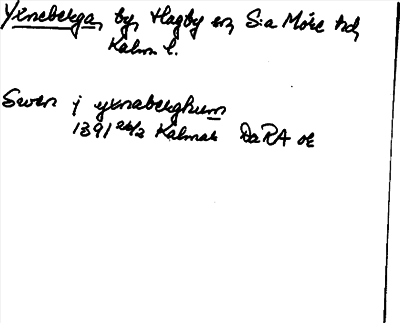 Yxneberga, by, Hagby sn, S:a Möre hd,
Kalm l.
Swen j yxnaberghum
1391 26/2 Kalmar DaRA or